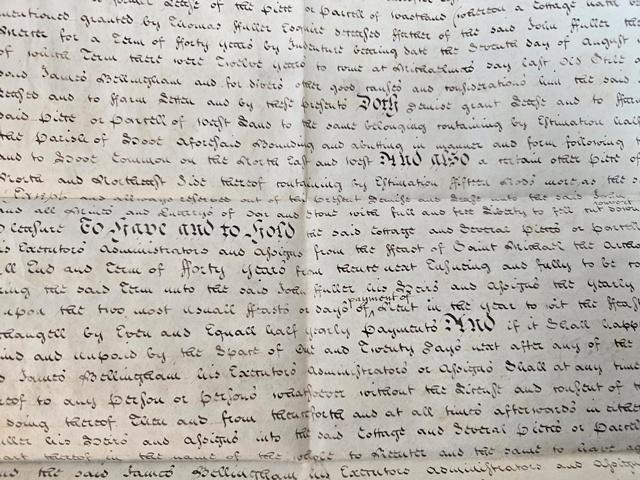 former Lease of the Piece or Parcell of wastland whereon a Cottage hath
mentioned granted by Thomas ffuller Esquire deceased ffather of the said John ffuller the
Brewer for a Term of fforty years by Indenture bearing date the Seventh day of August
of which Term there were Twelve years to come at Michaelmas day last Old Stile
James Bellingham and for divers other good causes and considerations him the said
Leased and to ffarm Letten and by these presents Doth demise grant Lease and to ffar
said Piece or Parcell of West Land to the same belonging containing by Estimation half
the Parish of aforesaid Bounding and abutting in manner and form following
and to Common on the North East and West And also a certain other Piece of
North and Northeast Side thereof containing by Estimation fifteen Rods more as the
Except and allways reserved out of this present Demise and Lease unto the said John
and all Mines and Quarrys of Oar and Stone with full and free Liberty to fell cut down
pleasure To Have and to Hold the said Cottage and Several Pieces or Parcell
his Executors Administrators and Assigns from the ffeast of Saint Michael the Archa
ll End and Term of fforty years from thence next Ensuing and fully to be co
ring the said Term unto the said John ffuller his Heirs and Assigns the yearly
upon the two most usuall ffeasts or days of payment of Rent in the year to wit the ffeast
changell by Even and Equall half yearly Payments And if it Shall happ
ind and unpaid by the Space of One and Twenty Days next after any of the
James Bellingham his Executors Administrators or Assigns Shall at any time
reof to any Person or Persons whatsoever without the License and consent of
doing thereof Then and from thenceforth and at all times afterwards in either
uller his Heirs and Assigns into the said Cottage and Several Pieces or Parcell
part thereof in the name of the whole to Reenter and the same to have ag
nd the said James Bellingham his Executors Administrators and Assigns